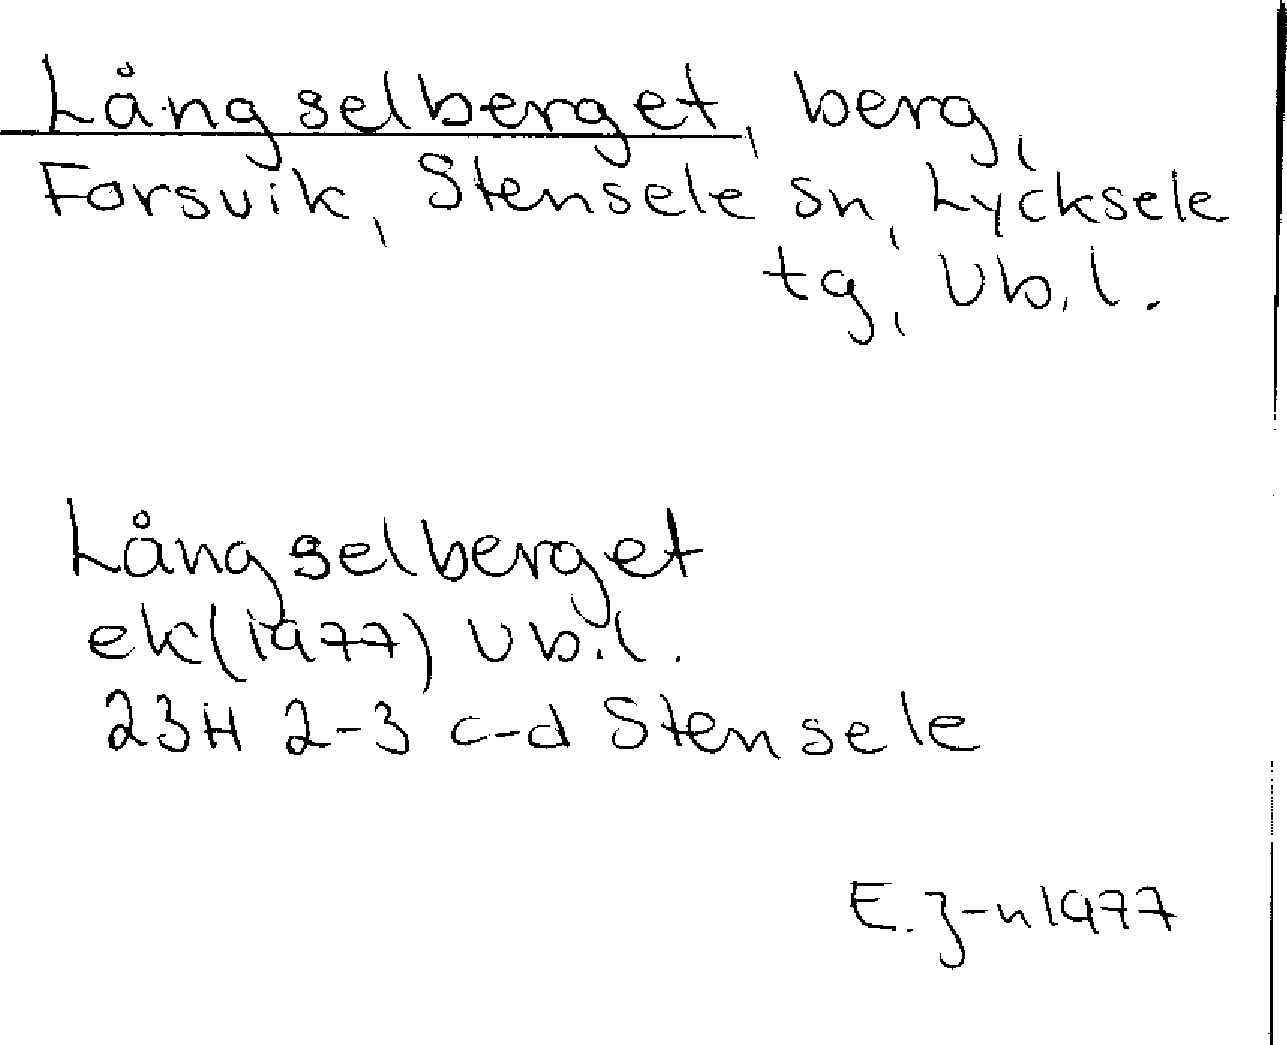 Långselberget, berg,
Forsvik, Stensele sn, Lycksele
tg, Vb.l.
Långselberget
ek(1977) Vb.l.
23H 2-3 c-d Stensele
E. J-n 1977